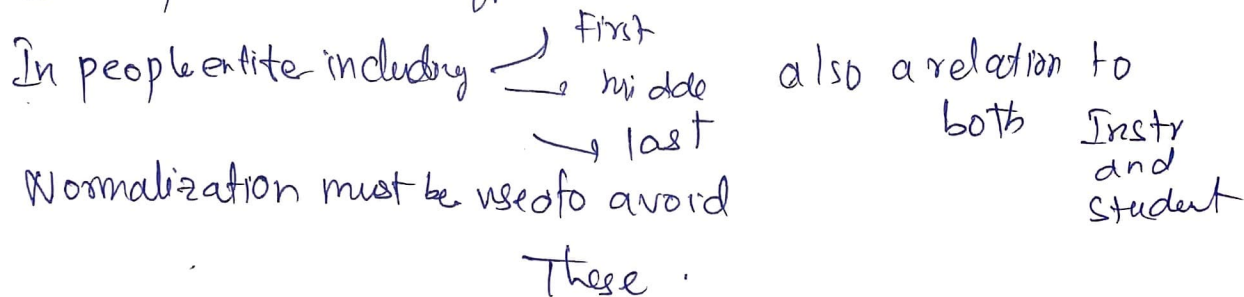 In people entite including → First
→ midde
→ last
also a relation to
both Instr
and
student
Normalization must be used to avoid
These.